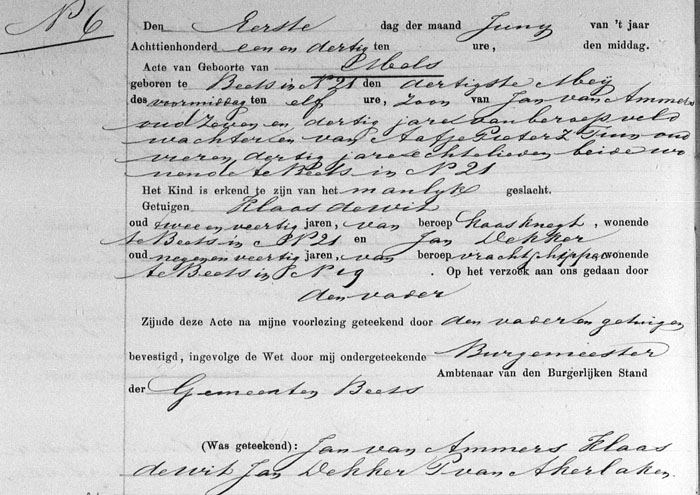 N 6
Den Eerste dag der maand Juny van 't jaar
Achttienhonderd een en dertig ten ure, den middag.
Acte van Geboorte van Mels
geboren te Beets in N 21 den dertigste Meij
des voormiddag ten elf ure, Zoon van Jan van Ammers
oud zeven en dertig jare van beroep veld
wachter en van Aafje Pieters Tuin oud
vier en dertig jare echtelieden beide wo
nende te Beets in N 21
Het Kind is erkend te zijn van het manlyk geslacht.
Getuigen Klaas de wit
oud twee en veertig jaren, van beroep kaasknegt, wonende
te Beets in N 21 en Jan Dekker
oud negen en veertig jaren, van beroep vrachtschipper wonende
te Beets in N 19. Op het verzoek aan ons gedaan door
den vader
Zijude deze Acte na mijne voorlezing geteekend door den vader en getuigen
bevestigd, ingevolge de Wet door mij ondergeteekende Burgemeester
Ambtenaar van den Burgerlijken Stand
der Gemeenten Beets
(Was geteekend): Jan van Ammers Klaas
de wit Jan Dekker P van Akerlaken.